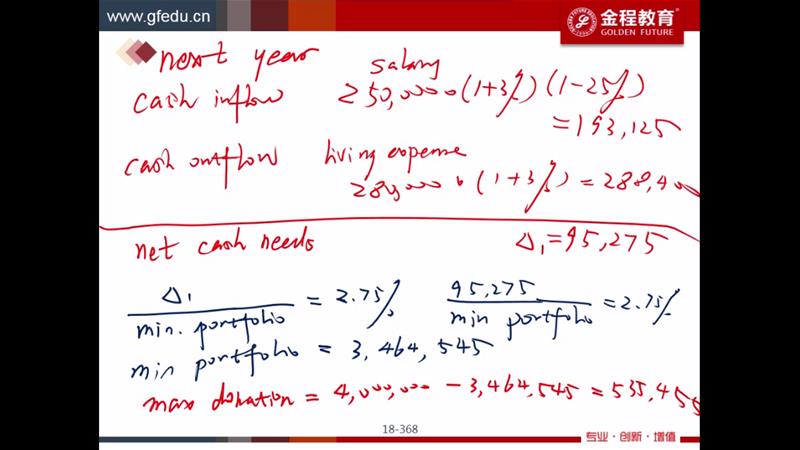 www.gfedu.cn
金程教育
GOLDEN FUTURE
next year
salary
cash inflow 250,000 • (1+3%) (1-25%)
= 193,125
cash outflow living expense
280,000 • (1+3%) = 288,400
net cash needs Δ₁ = 95,275
Δ₁ / min. portfolio = 2.75% 95,275 / min portfolio = 2.75%
min portfolio = 3,464,545
max donation = 4,000,000 - 3,464,545 = 535,455
18-368
专业·创新·增值